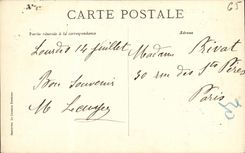 CARTE POSTALE
Partie réservée à la correspondance
Adresse
Lourdes 14 juillet
Bon Souvenir
M
Madame Privat
30 rue des Sts Pères
Paris